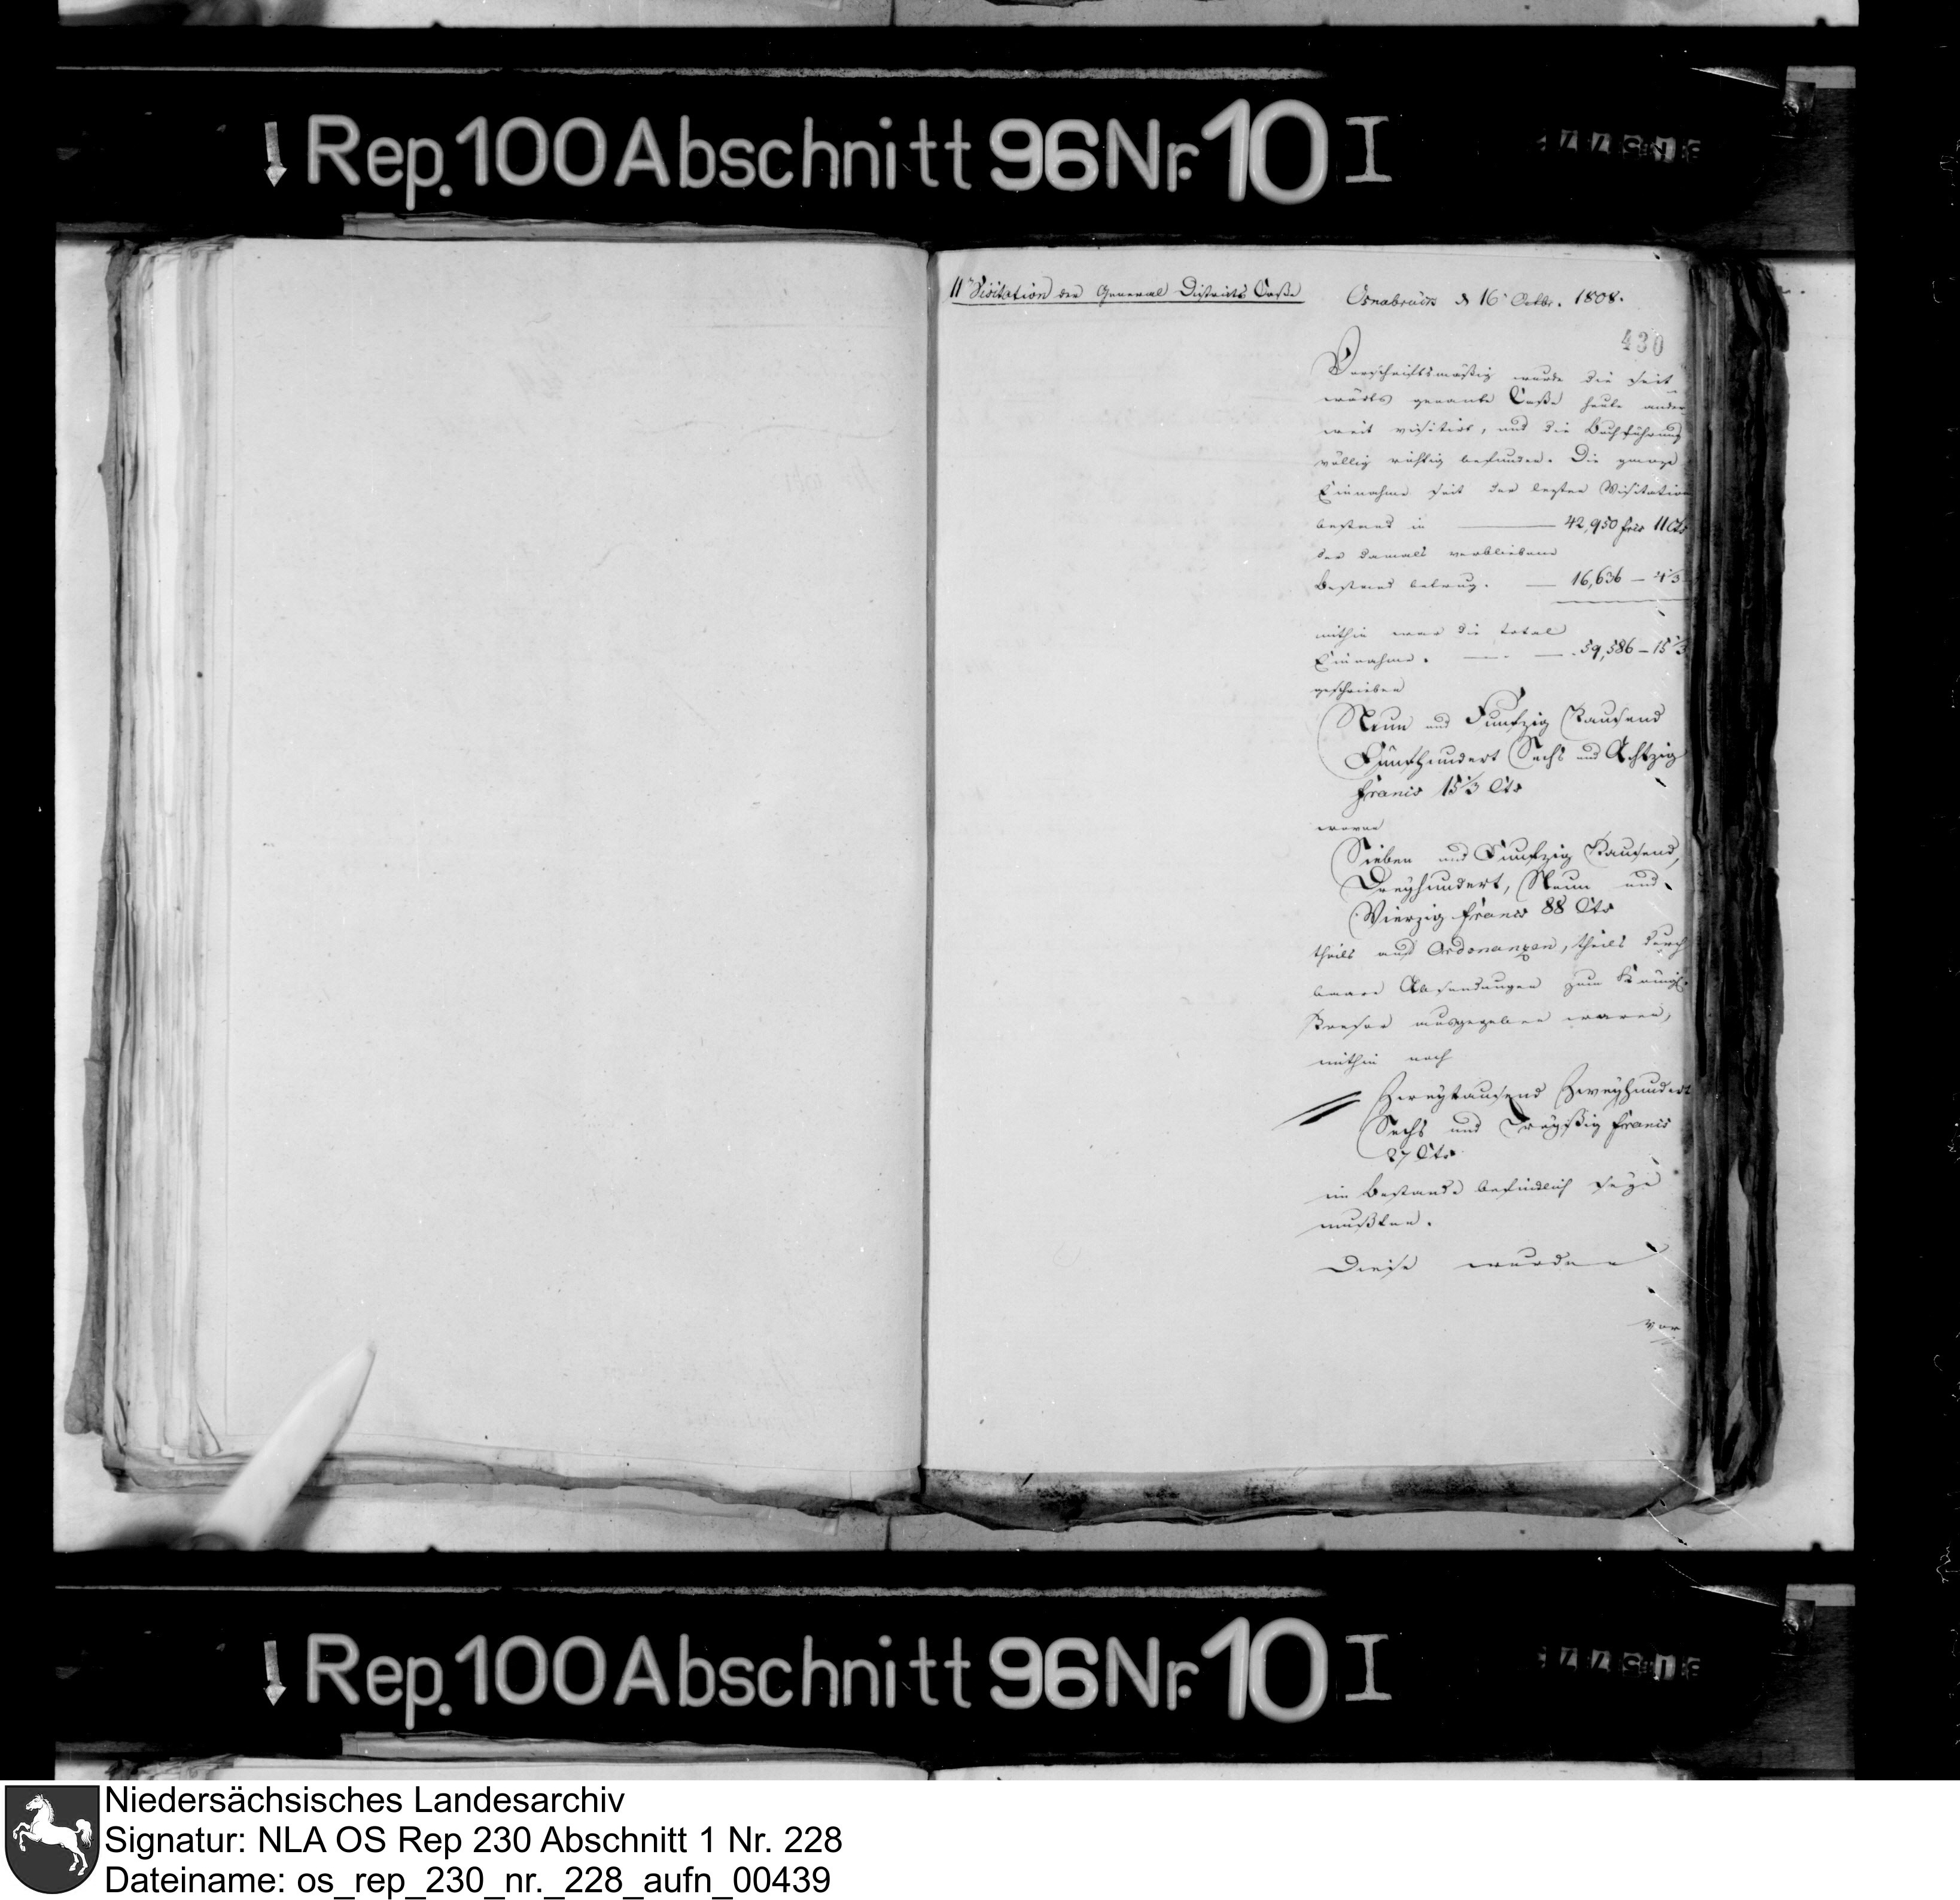 Rep. 100 Abschnitt 96 Nr. 10 I
11te Visitation der General Districts Casse
Osnabrück d 16 Octbr. 1808.
430
Vorschriftsmäßig wurde die seit
wärts genante Casse heute ander
weit visitirt, und die Buchführung
völlig richtig befunden. Die ganze
Einnahme seit der lezten Visitation
bestand in 42,950 frcs 11 Cts
der damals verbliebene
Bestand betrug. 16,636 — 4⅓
mithin war die total
Einnahme. 59,586 — 15⅓
geschrieben
Neun und Funfzig Tausend
Fünfhundert Sechs und Achtzig
Francs 15⅓ Cts
wovon
Sieben und Funfzig Tausend,
Dreyhundert, Neun und
Vierzig Francs 88 Cts
theils auf Ordonanzen, theils durch
baare Absendungen zum Königl.
Tresor ausgegeben waren,
mithin noch
Zweytausend Zweyhundert
Sechs und Dreyßig Francs
27 Cts
im Bestande befindlich seyn
mußten.
Diese wurden
vor
Rep. 100 Abschnitt 96 Nr. 10 I
Niedersächsisches Landesarchiv
Signatur: NLA OS Rep 230 Abschnitt 1 Nr. 228
Dateiname: os_rep_230_nr._228_aufn_00439